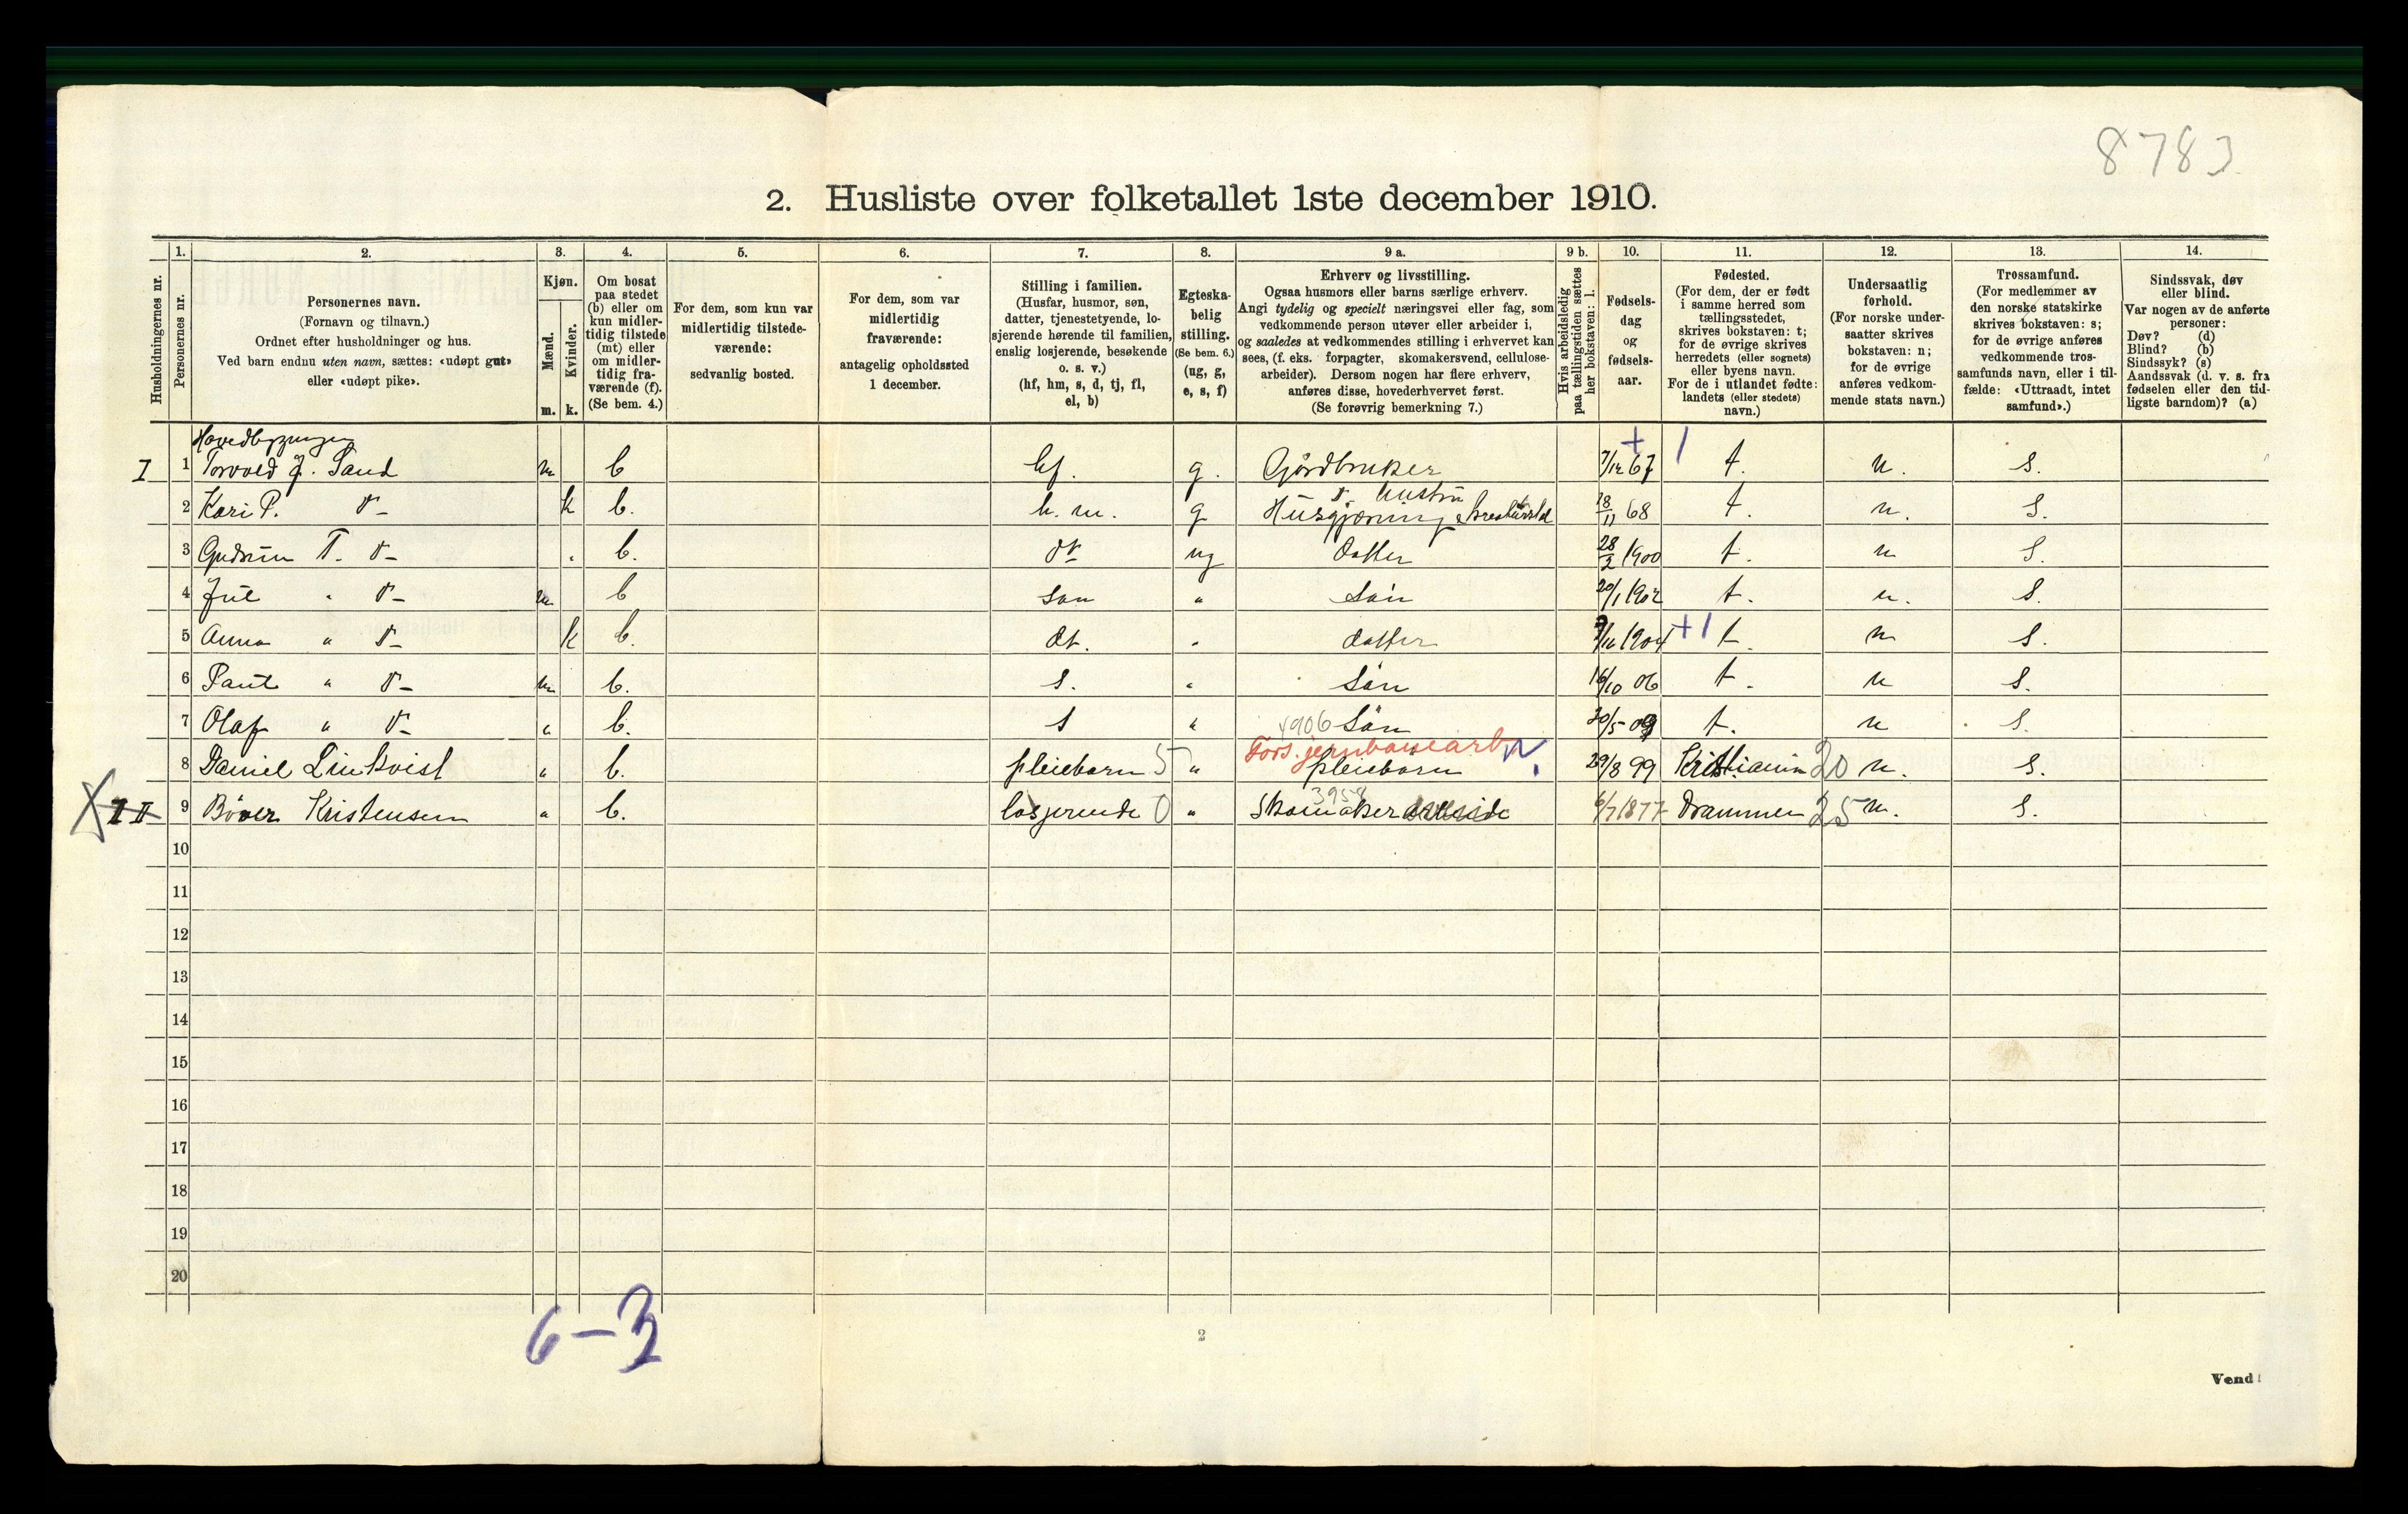 8783
2. Husliste over folketallet 1ste december 1910.
Husholdningernes nr.
1.
Personernes nr.
2.
Personernes navn.
(Fornavn og tilnavn.)
Ordnet efter husholdninger og hus.
Ved barn endnu uten navn, sættes: «udøpt gut»
eller «udøpt pike».
3.
Kjøn.
Mænd.
Kvinder.
m. k.
4.
Om bosat
paa stedet
(b) eller om
kun midler-
tidig tilstede
(mt) eller
om midler-
tidig fra-
værende (f).
(Se bem. 4.)
5.
For dem, som kun var
midlertidig tilstede-
værende:
sedvanlig bosted.
6.
For dem, som var
midlertidig
fraværende:
antagelig opholdssted
1 december.
7.
Stilling i familien.
(Husfar, husmor, søn,
datter, tjenestetyende, lo-
sjerende hørende til familien,
enslig losjerende, besøkende
o. s. v.)
(hf, hm, s, d, tj, fl,
el, b)
8.
Egteska-
belig
stilling.
(Se bem. 6.)
(ug, g,
e, s, f)
9 a.
Erhverv og livsstilling.
Ogsaa husmors eller barns særlige erhverv.
Angi tydelig og specielt næringsvei eller fag, som
vedkommende person utøver eller arbeider i,
og saaledes at vedkommendes stilling i erhvervet kan
sees, (f. eks. forpagter, skomakersvend, cellulose-
arbeider). Dersom nogen har flere erhverv,
anføres disse, hovederhvervet først.
(Se forøvrig bemerkning 7.)
9 b.
Hvis arbeidsledig
paa tællingstiden sættes
her bokstaven: l.
10.
Fødsels-
dag
og
fødsels-
aar.
11.
Fødested.
(For dem, der er født
i samme herred som
tællingsstedet,
skrives bokstaven: t;
for de øvrige skrives
herredets (eller sognets)
eller byens navn.
For de i utlandet fødte:
landets (eller stedets)
navn.)
12.
Undersaatlig
forhold.
(For norske under-
saatter skrives
bokstaven: n;
for de øvrige
anføres vedkom-
mende stats navn.)
13.
Trossamfund.
(For medlemmer av
den norske statskirke
skrives bokstaven: s;
for de øvrige anføres
vedkommende tros-
samfunds navn, eller i til-
fælde: «Uttraadt, intet
samfund».)
14.
Sindssvak, døv
eller blind.
Var nogen av de anførte
personer:
Døv? (d)
Blind? (b)
Sindssyk? (s)
Aandssvak (d. v. s. fra
fødselen eller den tid-
ligste barndom)? (a)
+ /
I 1 Torvald J. Sand m b hf. g. Gjårdbruker 7/12 67 t. n. s.
hustru
2 Kari P. d- k b. h. m. g Husgjerning 18/11 68 t. n. s.
3 Gudrun T. d- " b. dt ug datter 28/2 1900 t. n s.
4 Jul " d- m b son " sön 20/1 1902 t. n. s.
5 Anna " d- k b. dt. " datter /10 1904 +1 t n s.
6 Paul " d- m b. s. " sön 16/10 06 t. n s.
7 Olaf " d- " b. s " 4906 sön 30/5 09 t. n s.
Fors. jernbanearb. N.
8 Daniel Linkvist " b. pleiebarn 5 " pleiebarn 29/8 99 Kristiania 20 n. s.
3958
X II 9 Kristensen " b. losjerende 0 " Skomaker 6/7 1877 Drammen 25 n. s.
10
11
12
13
14
15
16
17
18
19
20
6-3
2
Vend!